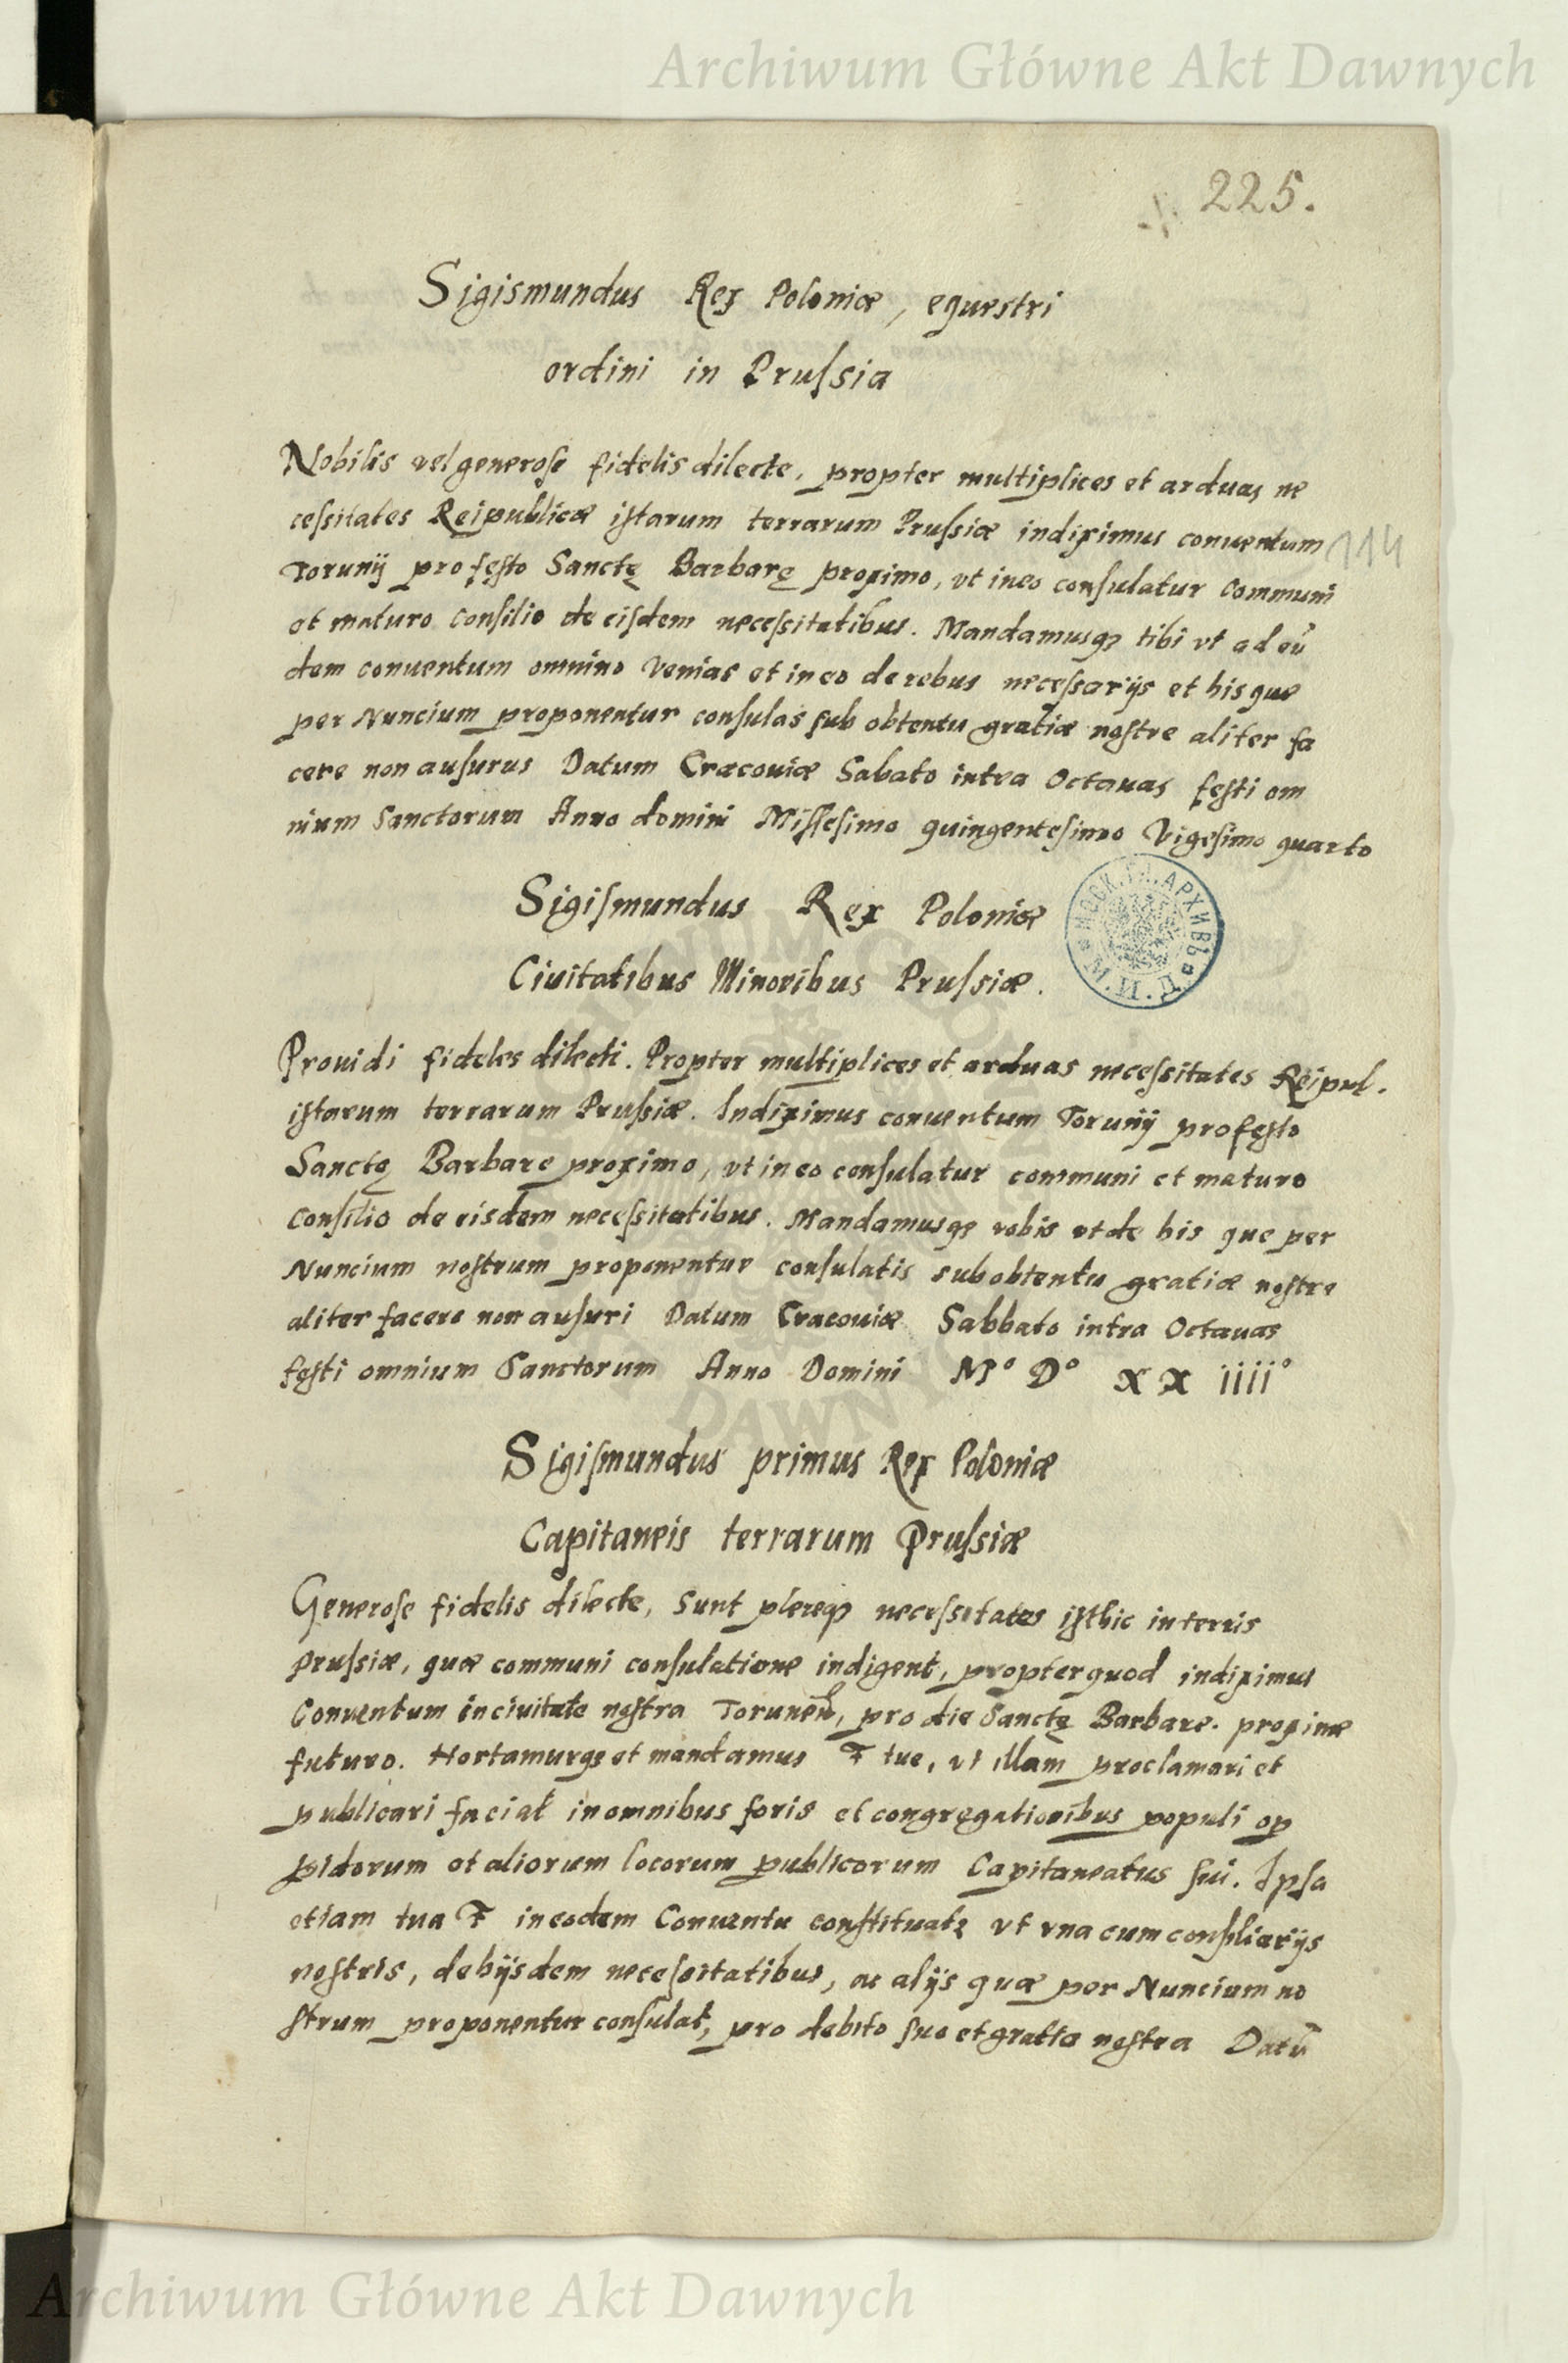 Archiwum Główne Akt Dawnych
225.
Sigismundus Rex Poloniæ, equestri
ordini in Prussia
Nobilis vel generose fidelis dilecte, propter multiplices et arduas ne
cessitates Reipublicæ istarum terrarum Prussiæ indiximus conuentum
114
Torunij pro festo Sanctę Barbarę proximo, vt in eo consulatur communi
et maturo consilio de eisdem necessitatibus. Mandamusq3 tibi vt ad eū
dem conuentum omnino venias et in eo de rebus necessarijs et his que
per Nuncium proponentur consulas sub obtentu gratiæ nostre aliter fa
cere non ausurus Datum Cracouiæ Sabato intra Octauas festi om
nium Sanctorum Anno domini Millesimo quingentesimo Vigesimo quarto
Sigismundus Rex Poloniæ
Ciuitatibus Minoribus Prussiæ.
МОСК. ГЛ. АРХИВЪ
Prouidi fideles dilecti. Propter multiplices et arduas necessitates Reipul.
istarum terrarum Prussiæ. Indiximus conuentum Torunij pro festo
Sanctę Barbare proximo, vt in eo consulatur communi et maturo
consilio de eisdem necessitatibus. Mandamusq3 vobis vt de his que per
Nuncium nostrum proponentur consulatis sub obtentu gratiæ nostre
aliter facere non ausuri Datum Cracouiæ Sabbato intra Octauas
festi omnium Sanctorum Anno Domini M° D° XX iiii°
Sigismundus primus Rex Poloniæ
Capitaneis terrarum Prussiæ
Generose fidelis dilecte, Sunt plereq3 necessitates isthic in terris
Prussiæ, quæ communi consulatione indigent, propter quod indiximus
Conuentum in ciuitate nostra Torunen, pro die Sanctę Barbare. proxime
futuro. Hortamurq3 et mandamus F tue, vt illam proclamari et
publicari faciat in omnibus foris et congregationibus populi op
pidorum et aliorum locorum publicorum Capitaneatus sui. Ipsa
etiam tua F in eodem Conuentu constituatr vt vna cum consiliarijs
nostris, de hijsdem necessitatibus, ac alijs quæ per Nuncium no
strum proponentur consulat, pro debito suo et gratia nostra Datū
Archiwum Główne Akt Dawnych